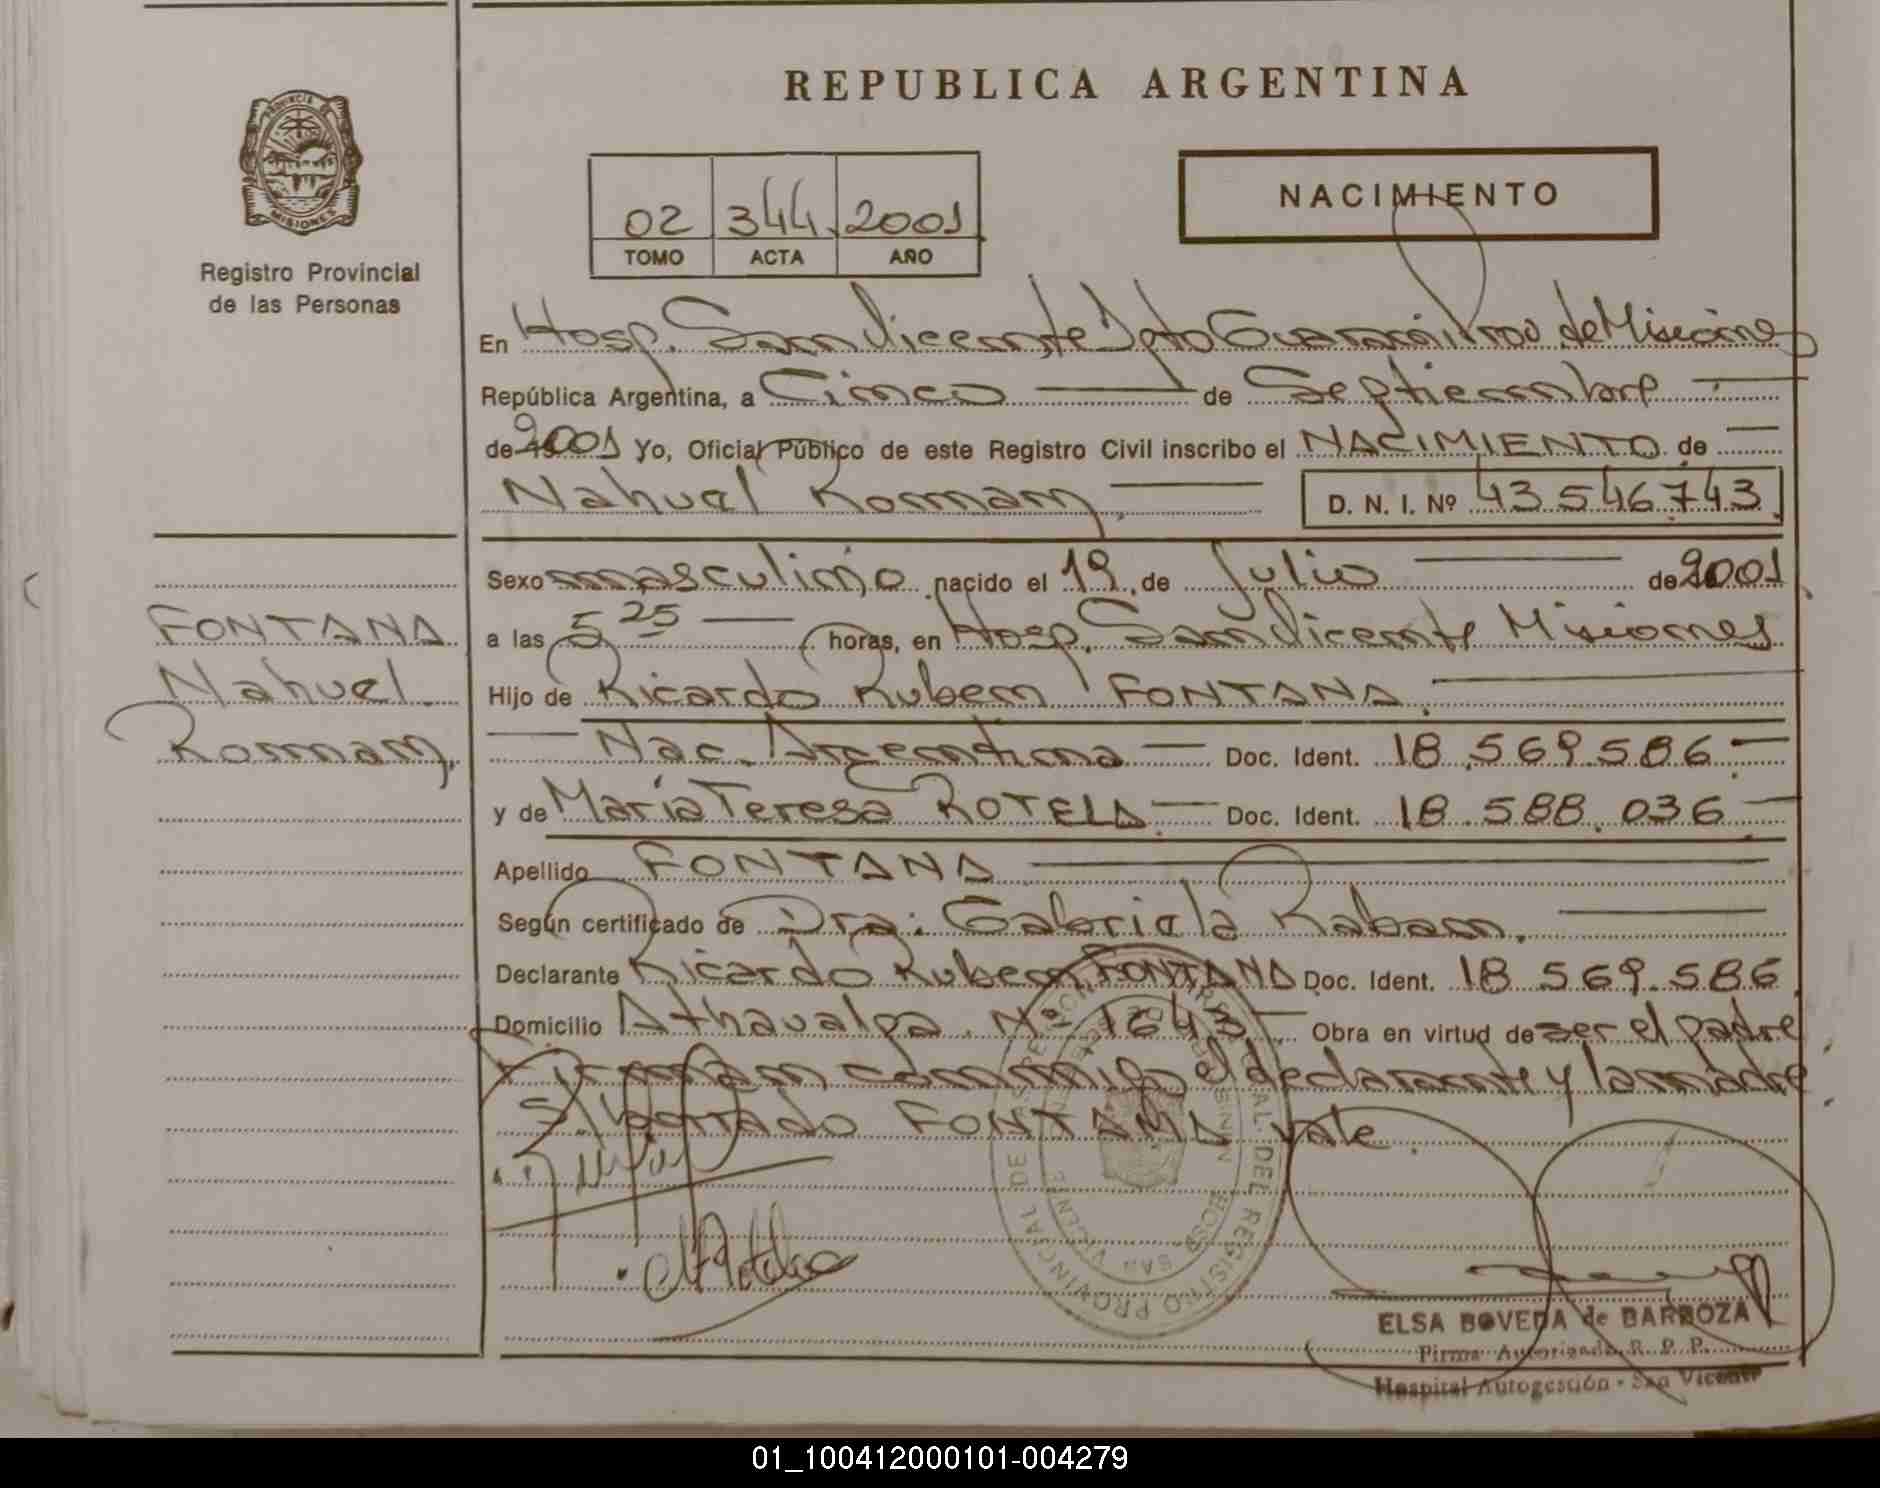 REPUBLICA ARGENTINA
PROVINCIA DE
MISIONES
Registro Provincial
de las Personas
NACIMIENTO
02 344. 2001
TOMO ACTA AÑO
En Hosp. San Vicente Dpto Guaraní Prov de Misiones
República Argentina, a Cinco de Septiembre
de 2001 Yo, Oficial Público de este Registro Civil inscribo el NACIMIENTO de
Nahuel Roman. D. N. I. Nº 43546743
Sexo masculino nacido el 19 de Julio de 2001
a las 5 25 horas, en Hosp. San Vicente Misiones
FONTANA
Nahuel
Roman.
Hijo de Ricardo Ruben FONTANA.
Nac. Argentina Doc. Ident. 18.569.586
y de María Teresa ROTELA Doc. Ident. 18.588.036
Apellido FONTANA
Según certificado de Dra: Gabriela Raban.
Declarante Ricardo Ruben FONTANA Doc. Ident. 18 569.586
Domicilio Athaualpa. Nº 1643 Obra en virtud de ser el padre
Firman conmigo el declarante y la madre
S/ borrado FONTANA vale.
REGISTRO PROVINCIAL DE
SAN VICENTE
HOSP.
ELSA BOVEDA de BARBOZA
Firma Autorizada R. P. P.
Hospital Autogestión - San Vicente
01_100412000101-004279